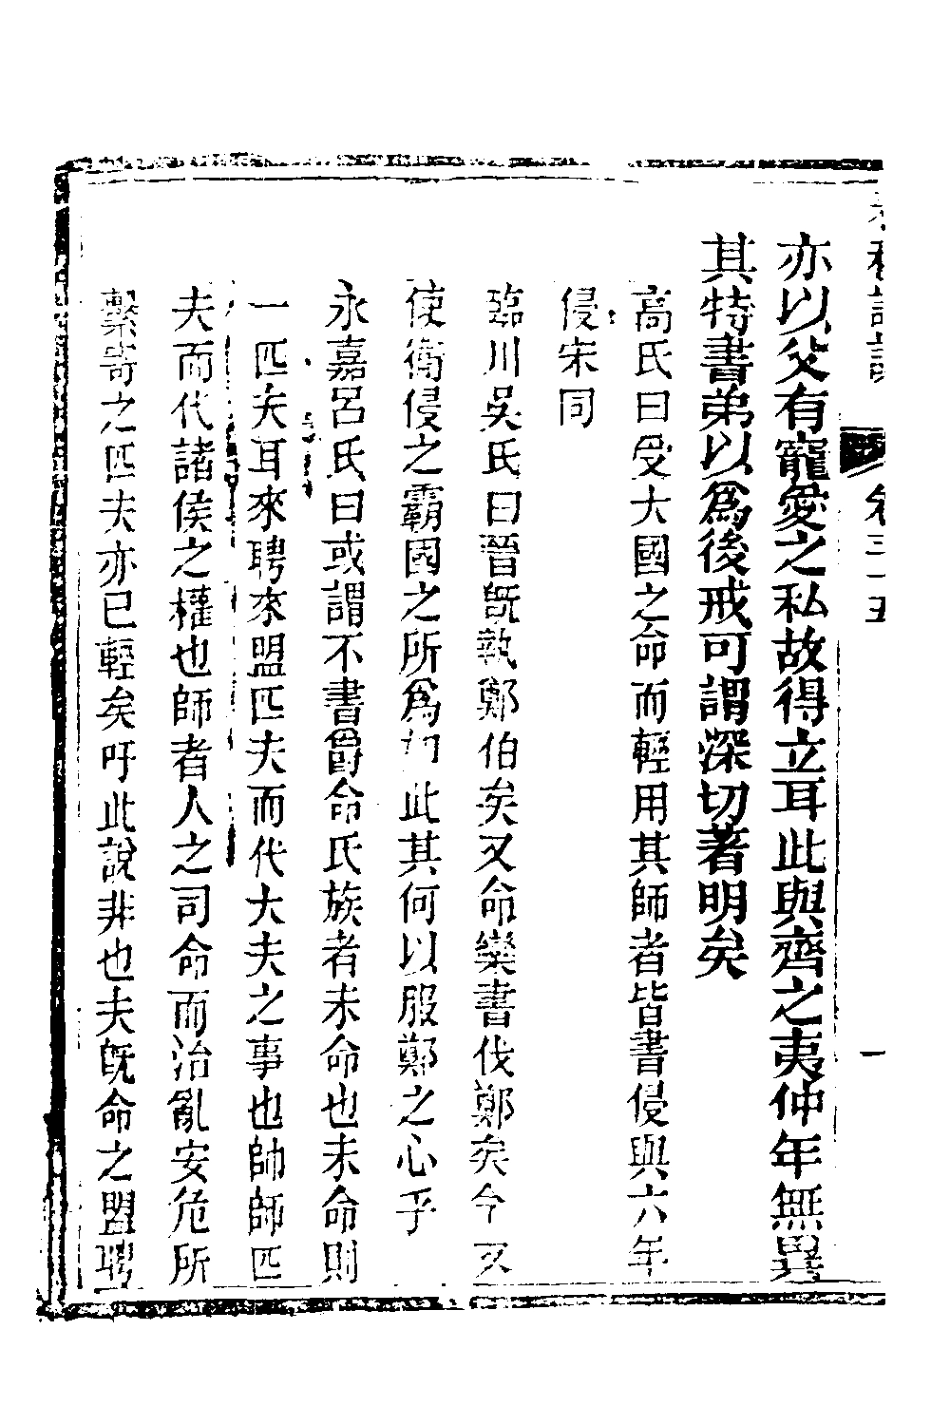 亦以父有寵愛之私故得立耳此與齊之夷仲年無異
其特書弟以爲後戒可謂深切著明矣
高氏曰受大國之命而輕用其師者皆書侵與六年
侵宋同
臨川吳氏曰晉旣執鄭伯矣又命欒書伐鄭矣今又
使衛侵之霸國之所爲如此其何以服鄭之心乎
永嘉呂氏曰或謂不書爵命氏族者未命也未命則
一匹夫耳來聘來盟匹夫而代大夫之事也帥師匹
夫而代諸侯之權也師者人之司命而治亂安危所
繫寄之匹夫亦已輕矣吁此說非也夫旣命之盟聘